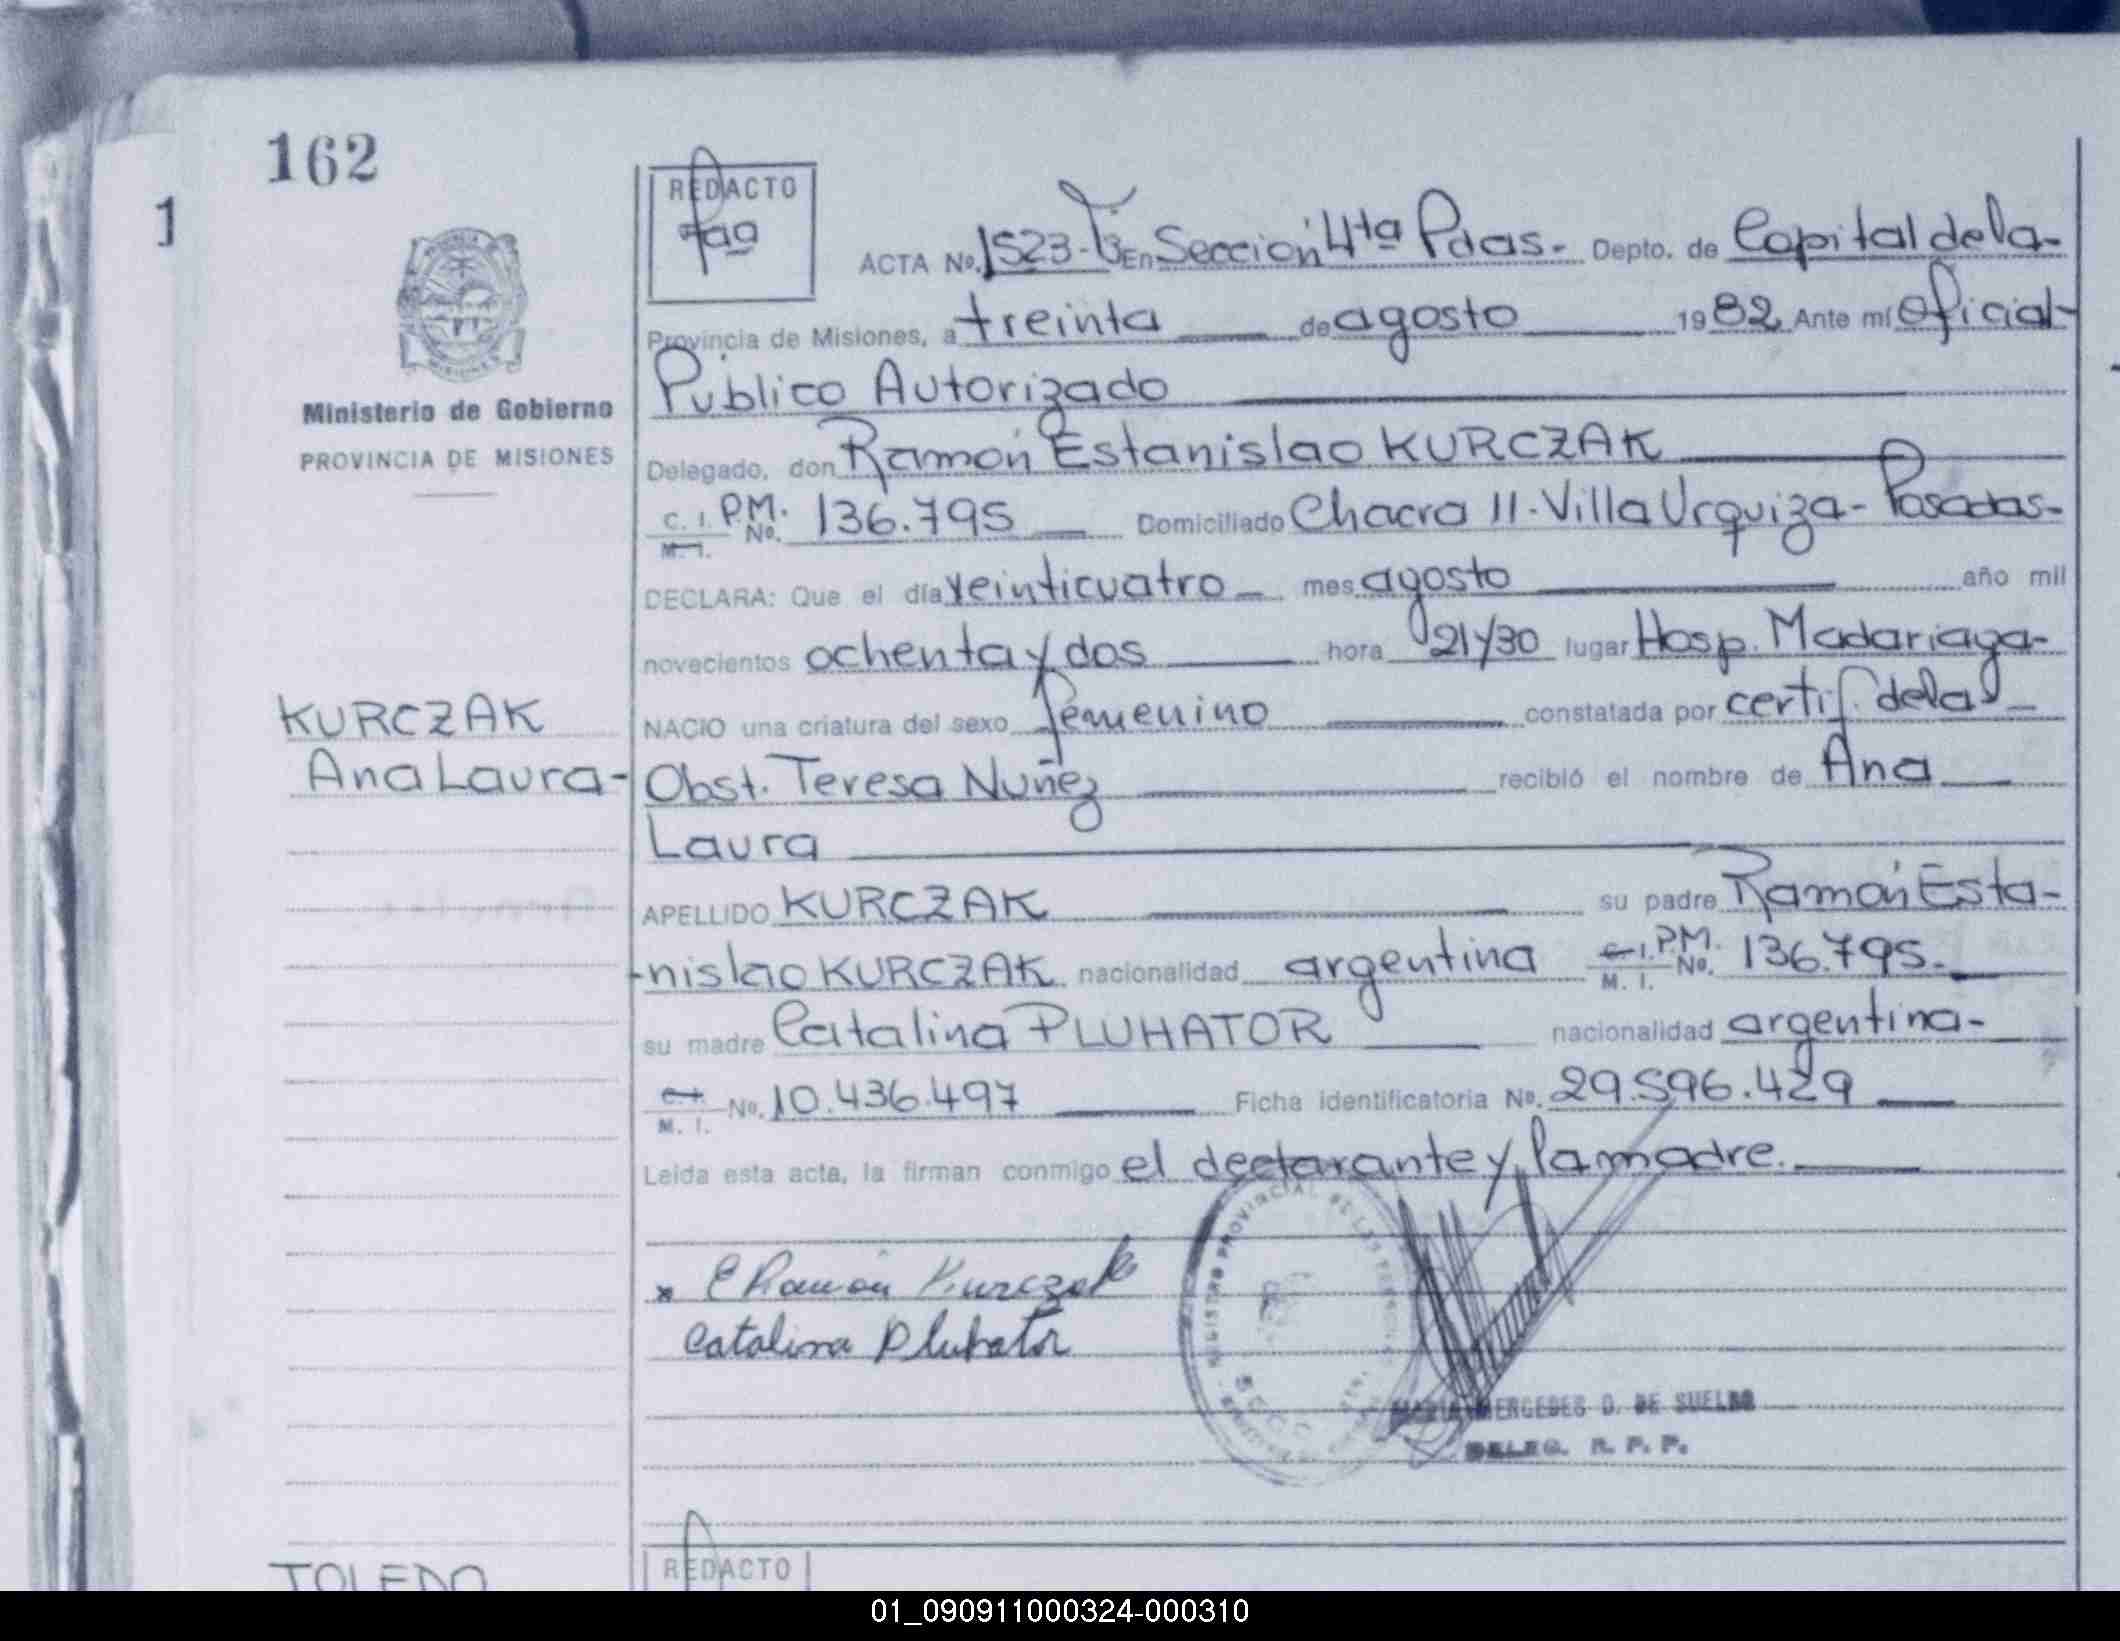 162
1
REDACTO
ACTA No. 1523-T3 En Sección 4ta Pdas.- Depto. de Capital de la-
Provincia de Misiones, a treinta de agosto 1982 Ante mí Oficial-
Ministerio de Gobierno
PROVINCIA DE MISIONES
Público Autorizado
Delegado, don Ramón Estanislao KURCZAK
C. I. P.M. M. I. No. 136.795 Domiciliado Chacra 11.Villa Urquiza- Posadas-
DECLARA: Que el día veinticuatro mes agosto año mil
novecientos ochenta y dos hora 21y30 lugar Hosp. Madariaga-
NACIO una criatura del sexo femenino constatada por certif. de la
KURCZAK
Ana Laura-
Obst. Teresa Nuñez recibió el nombre de Ana
Laura
APELLIDO KURCZAK su padre Ramón Esta-
-nislao KURCZAK nacionalidad argentina C. I. P.M. M. I. No. 136.795.
su madre Catalina PLUHATOR nacionalidad argentina-
C. I. M. I. No. 10.436.497 Ficha identificatoria No. 29.596.429
Leida esta acta, la firman conmigo el declarante y la madre.
x E Ramón Kurczak
Catalina Pluhator
REGISTRO PROVINCIAL DE LAS PERSONAS
MERCEDES D. DE SUELDO
DELEG. R. P. P.
TOLEDO
REDACTO
01_090911000324-000310